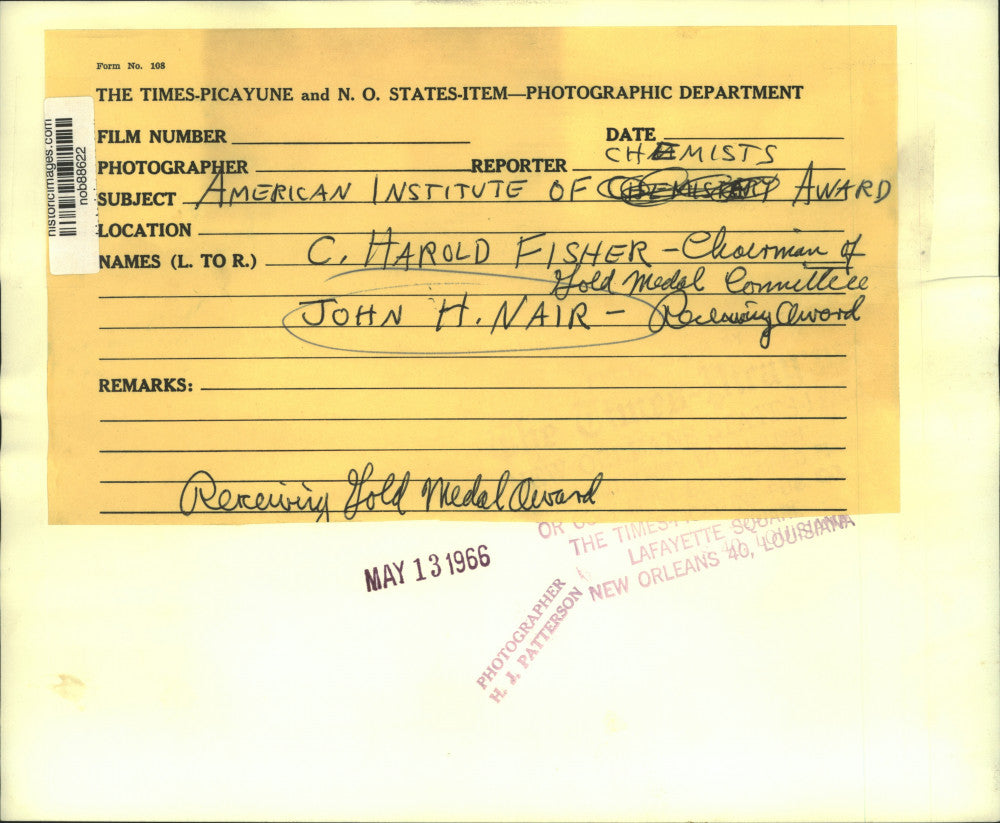 Form No. 108
THE TIMES-PICAYUNE and N. O. STATES-ITEM—PHOTOGRAPHIC DEPARTMENT
FILM NUMBER
DATE
CHEMISTS
PHOTOGRAPHER
REPORTER
SUBJECT AMERICAN INSTITUTE OF AWARD
LOCATION
NAMES (L. TO R.) C. HAROLD FISHER - Chairman of
Gold Medal Committee
JOHN H. NAIR - Receiving Award
REMARKS:
Receiving Gold Medal Award
historicimages.com
nob88622
OR
THE TIMES-
LAFAYETTE SQUA
NEW ORLEANS 40, LOUISIANA
MAY 13 1966
PHOTOGRAPHER
H. J. PATTERSON